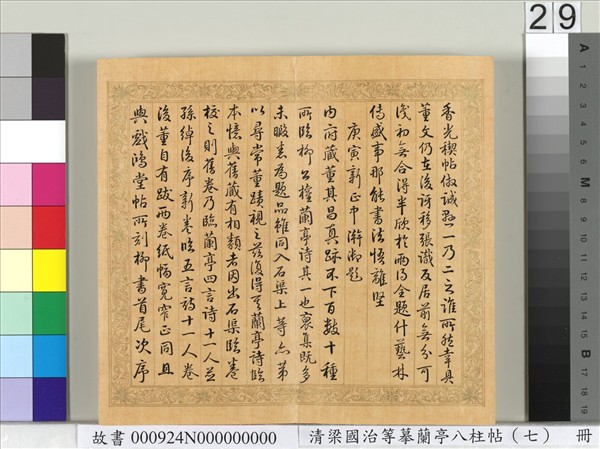 香光禊帖倣誠懸一乃二之誰所然幸具
董文仍在後訝移張識反居前無分可
淺初無合得半欣於兩得全題什藝林
傳盛事那能書法悟離堅
庚寅新正中澣御題
內府藏董其昌真跡不下百數十種
所臨柳公權蘭亭詩其一也裒集既多
未暇悉為題品雖同入石渠上等亦第
以尋常董蹟視之茲復得其蘭亭詩臨
本憶與舊藏有相類者因出石渠臨卷
校之則舊卷乃臨蘭亭四言詩十一人并
孫綽後序新卷臨五言詩十一人卷
後董自有跋兩卷紙幅寬窄正同且
與戲鴻堂帖所刻柳書首尾次序
29
A 1 2 3 4 5 6 M 8 9 10 11 12 13 14 15 B 17 18 19
故書 000924N000000000
清梁國治等摹蘭亭八柱帖（七） 冊